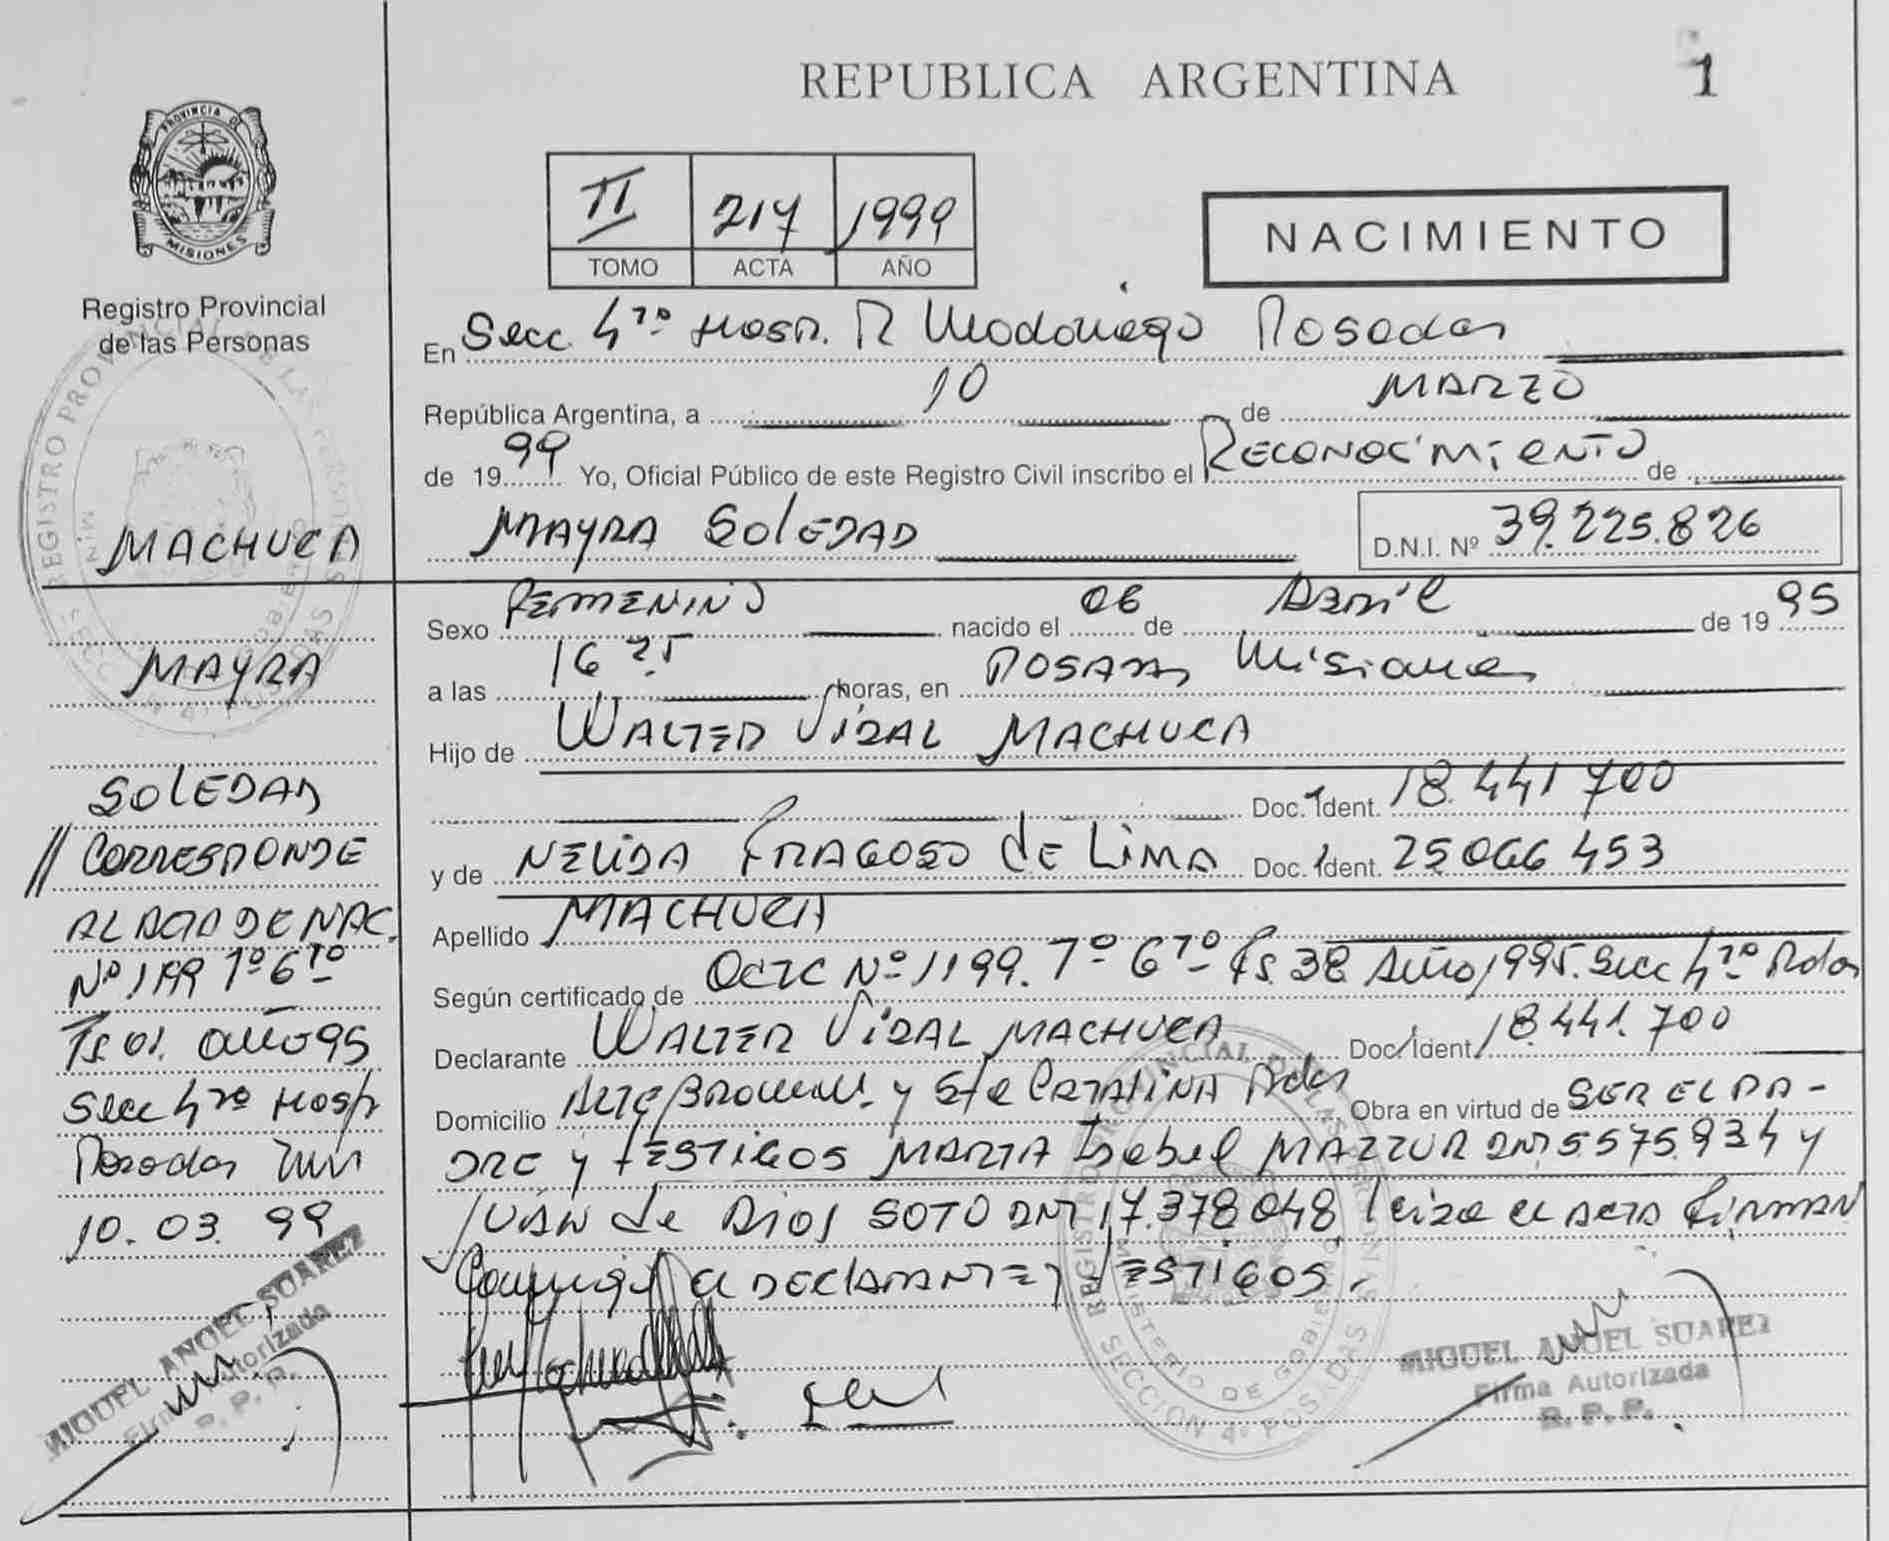 REPUBLICA ARGENTINA
1
PROVINCIA DE
MISIONES
Registro Provincial
de las Personas
II 217 1999
TOMO ACTA AÑO
NACIMIENTO
En Secc. 4ta Hosp. R Madariaga Posadas
República Argentina, a 10 de MARZO
de 1999 Yo, Oficial Público de este Registro Civil inscribo el RECONOCIMIENTO de
MAYRA SOLEDAD D.N.I. Nº 39.225.826
Sexo FEMENINO nacido el 06 de Abril de 1995
a las 16 horas, en POSADAS Misiones
Hijo de WALTER VIDAL MACHUCA
Doc. Ident. 18.441.700
y de NELIDA FRAGOSO de LIMA Doc. Ident. 25.066.453
Apellido MACHUCA
Según certificado de ACTA Nº 1199. Tº 6to Fs. 38 Año 1995. Secc 4ta Pdas
Declarante WALTER VIDAL MACHUCA Doc. Ident. 18.441.700
Domicilio Alte Brown y Sta CATALINA Pdas Obra en virtud de SER EL PA-
DRE y TESTIGOS MARTA Isabel MAZZUR DNI 5.575.934 y
JUAN de DIOS SOTO DNI 17.378.048, leida el ACTA FIRMAN
Conmigo el DECLARANTE y TESTIGOS.
MACHUCA
MAYRA
SOLEDAD
// CORRESPONDE
AL ACTA DE NAC.
Nº 1199 Tº 6to
Fs 01. año 95
Secc 4ta Hosp
Posadas Mnes
10. 03. 99
MIGUEL ANGEL SUAREZ
Firma Autorizada
R. P. P.
MIGUEL ANGEL SUAREZ
Firma Autorizada
R. P. P.
REGISTRO PROVINCIAL DE LAS PERSONAS
MINISTERIO DE GOBIERNO
SECCION 4º POSADAS